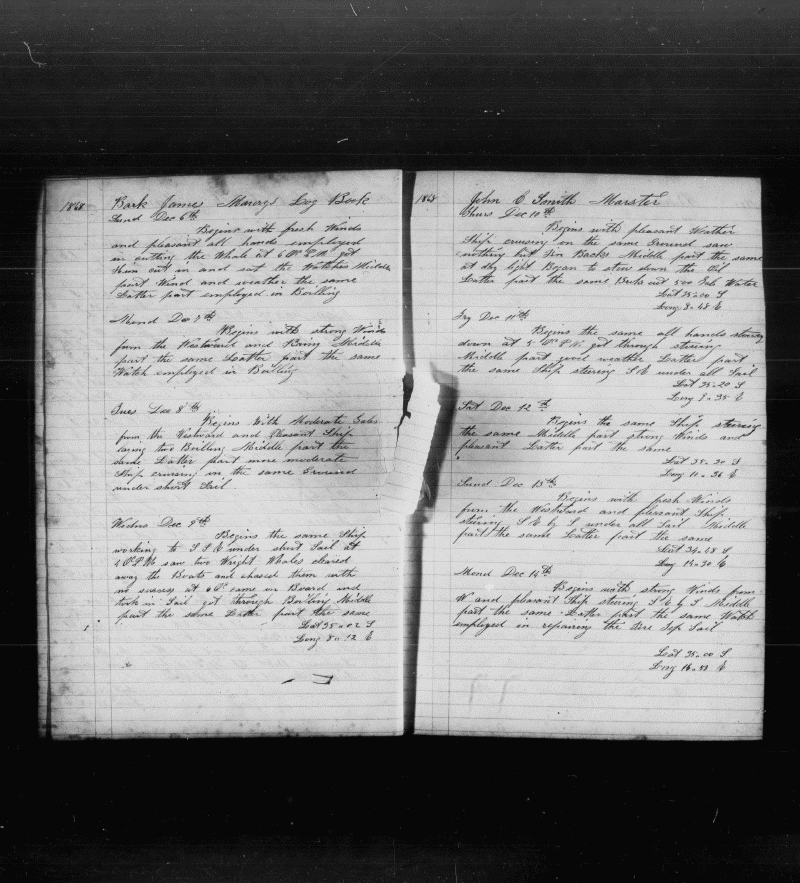 1868 Bark James Maurys Log Book
Sund Dec 6th
Begins with fresh Winds
and pleasant all hands employed
in cutting the Whale at 6 P.M got
them cut in and set the Watches Middle
part Wind and weather the same
Latter part employed in Boiling
Mond Dec 7th
Begins with strong Winds
from the Westward and Rainy Middle
part the same Latter part the same
Watch employed in Boiling
Tues Dec 8th
Begins With Moderate Gales
from the Westward and Pleasant Ship
laying two Boiling Middle part the
same Latter part more moderate
Ship crusing in the same Ground
under short Sail
Wednes Dec 9th
Begins the same Ship
working to S S E under short Sail at
1 P.M saw two Wright Whales cleared
away the Boats and chased them with
no sucsess at 6 P came on Board and
took in Sail got through Boiling Middle
part the same Latter part the same
Lat 35-02 S
Long 8-12 E
1868 John C. Smith Marster
Thurs Dec 10th
Begins with pleasant Wather
Ship crusing on the same Ground saw
nothing but Fin Backs Middle part the same
at day light Began to stow down the Oil
Latter part the same Broke out 500 Gals Water
Lat 35-00 S
Long 8-48 E
Fry Dec 11th
Begins the same all hands stowing
down at 5 P.M got through stowing
Middle part good weather Latter part
the same Ship steering S E under all Sail
Lat 35-20 S
Long 9-35 E
Sat Dec 12th
Begins the same Ship steering
the same Middle part strong Winds and
pleasant Latter part the same
Lat 35-30 S
Long 11-36 E
Sund Dec 13th
Begins with fresh Winds
from the Westward and pleasant Ship
steering S E by S under all Sail Middle
part the same Latter part the same
Lat 34-48 S
Long 14-30 E
Mond Dec 14th
Begins with strong Winds from
W and pleasant Ship steering S E by S Middle
part the same Latter part the same Watch
employed in repairing the Fore Top Sail
Lat 35-00 S
Long 16-43 E